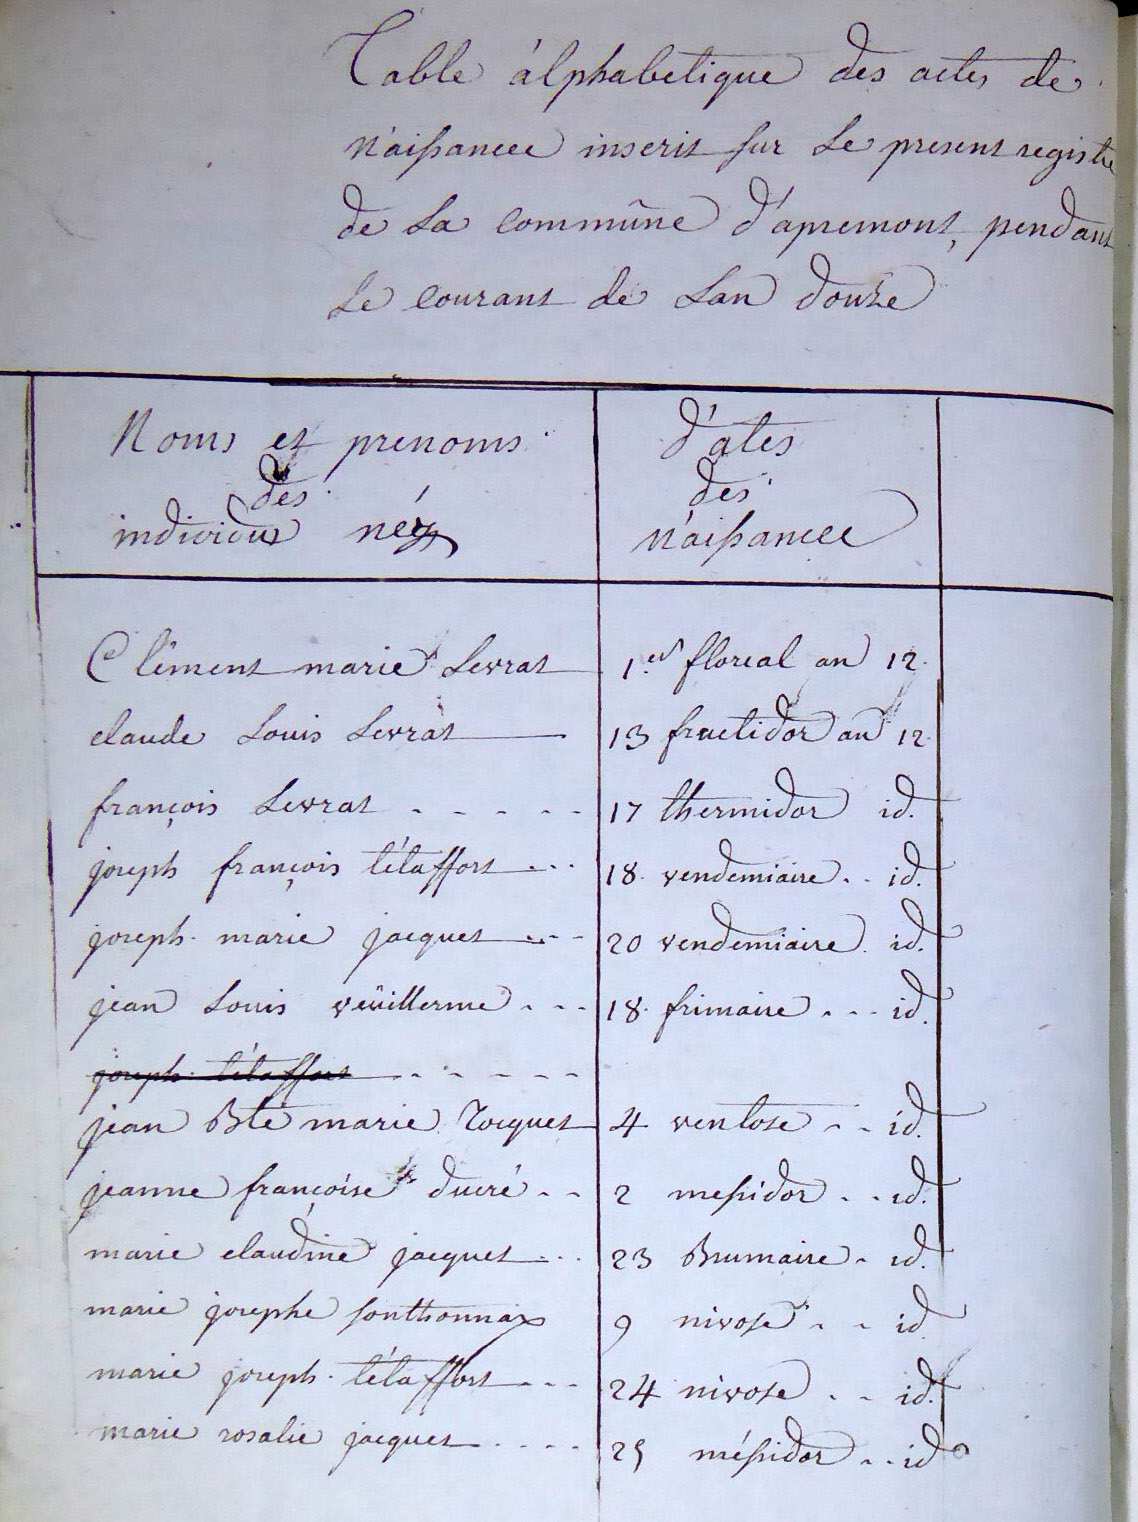 Table álphabetique des actes de
náissancee inscrit sur Le present registre
de La commûne d'apremont, pendant
Le courant de Lan douze
Noms et prenoms
des
individus néz
d'ates
des
náissancee
Clément marie Levrat 1.er floreal an 12.
claude Louis Levrat 13 fructidor an 12.
françois Levrat - - - - - 17 thermidor id.
joseph françois tétaffort - - - 18. vendemiaire - - id.
joseph. marie jacquet - - - 20 vendemiaire. id.
jean Louis veüillerme - - - 18. frimaire - - - id.
joseph. tétaffort - - - - - -
jean Bte marie Tocquet 4 ventose - - id.
jeanne françoise ducré - - 2 messidor - - id.
marie claudine jacquet - - - 23 Brumaire - id.
marie josephe sonthonnax 9 nivose - - id.
marie joseph. tétaffort - - - 24 nivose - - id.
marie rosalie jacquet - - - - 25 méssidor - - id